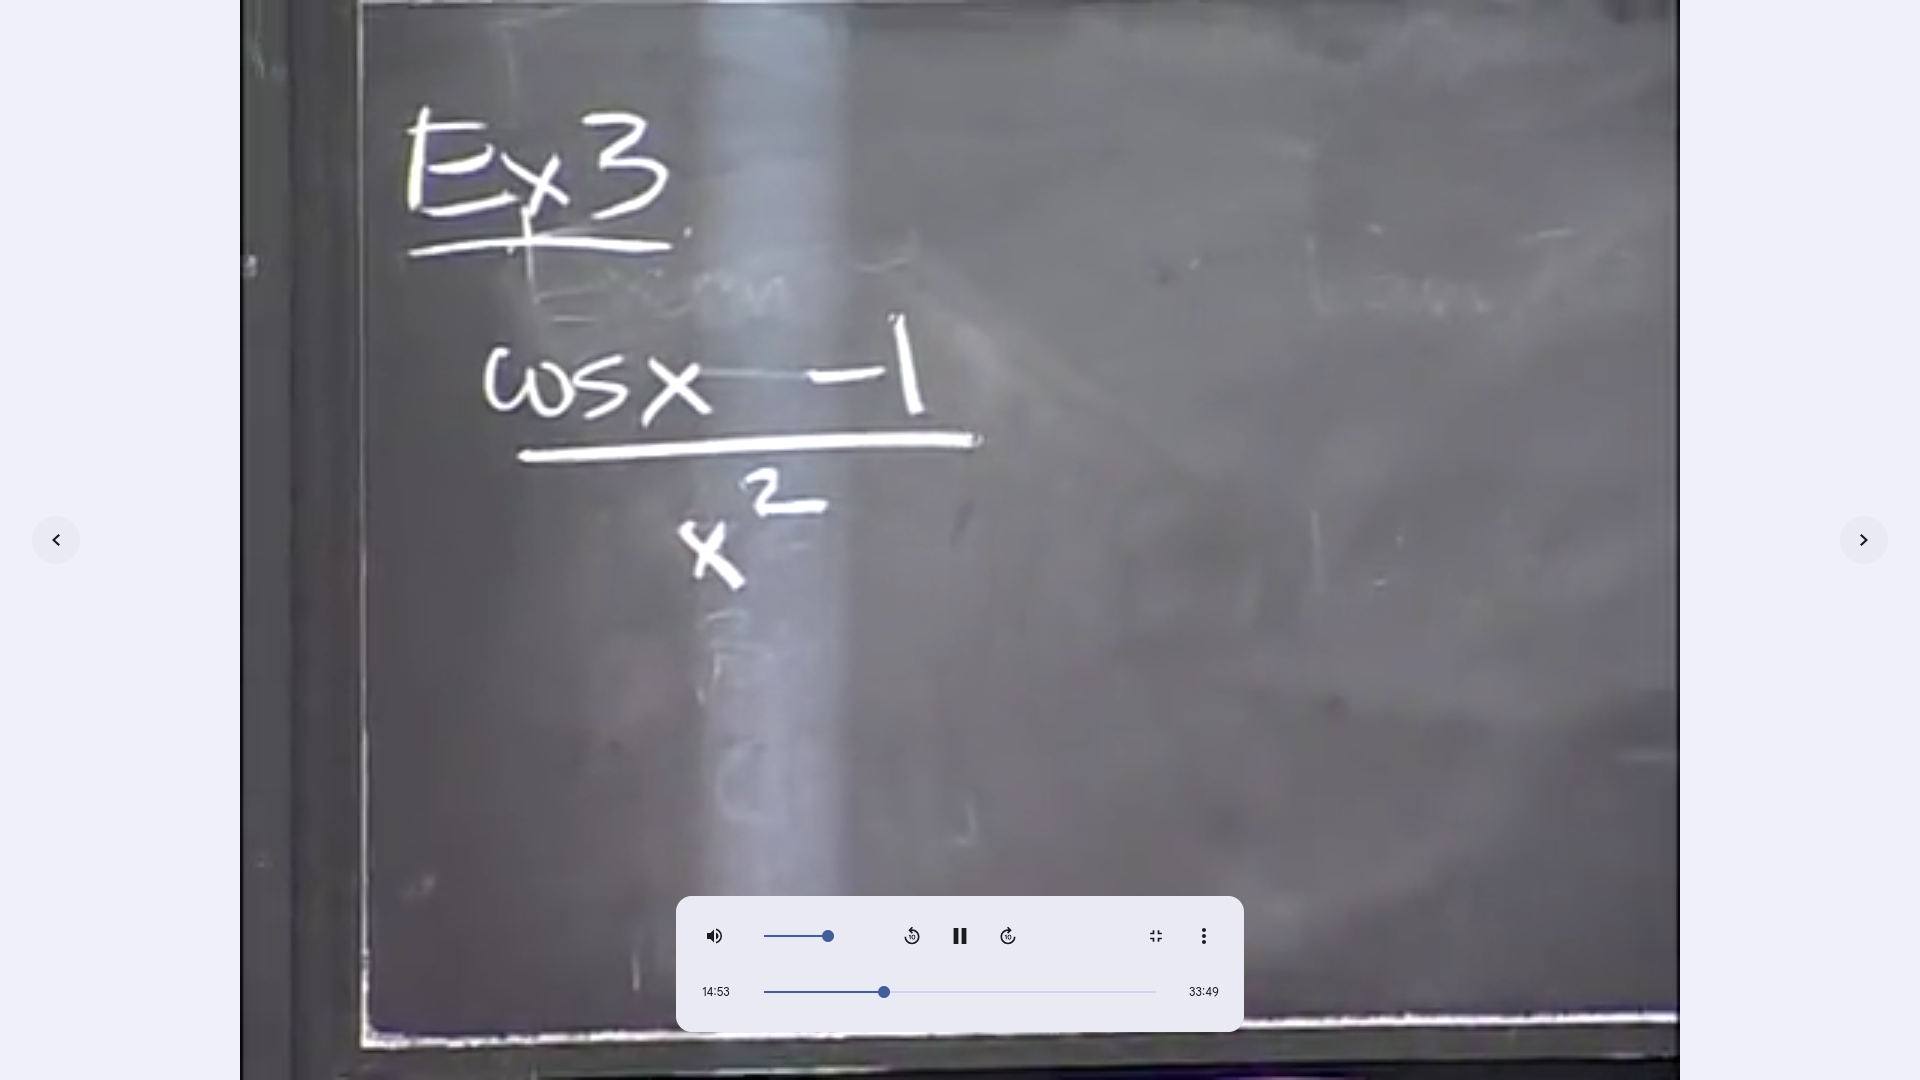 Ex 3
cos x - 1
x²
10
10
14:53
33:49